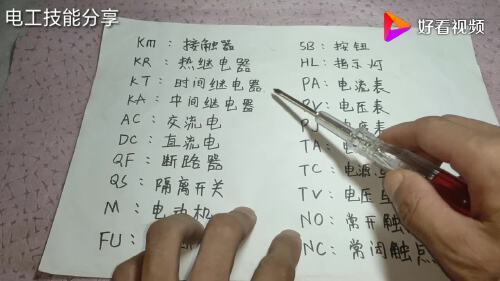 电工技能分享
好看视频
KM：接触器
KR：热继电器
KT：时间继电器
KA：中间继电器
AC：交流电
DC：直流电
QF：断路器
QS：隔离开关
M：电动机
FU：
SB：按钮
HL：指示灯
PA：电流表
PV：电压表
PJ 电度表
TA：电
TC：电源
TV：电压互
NO：常开触
NC：常闭触点